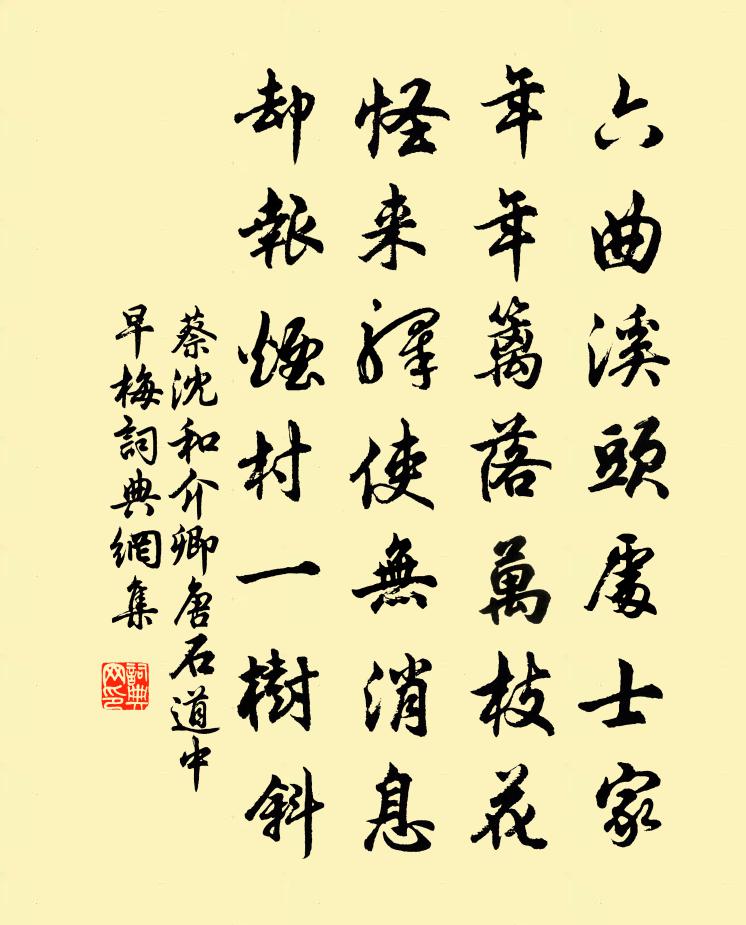 六曲溪頭處士家
年年籬落萬枝花
怪来驛使無消息
却報煙村一樹斜
蔡沈和介卿唐石道中
早梅詞典網集
詞典
网印